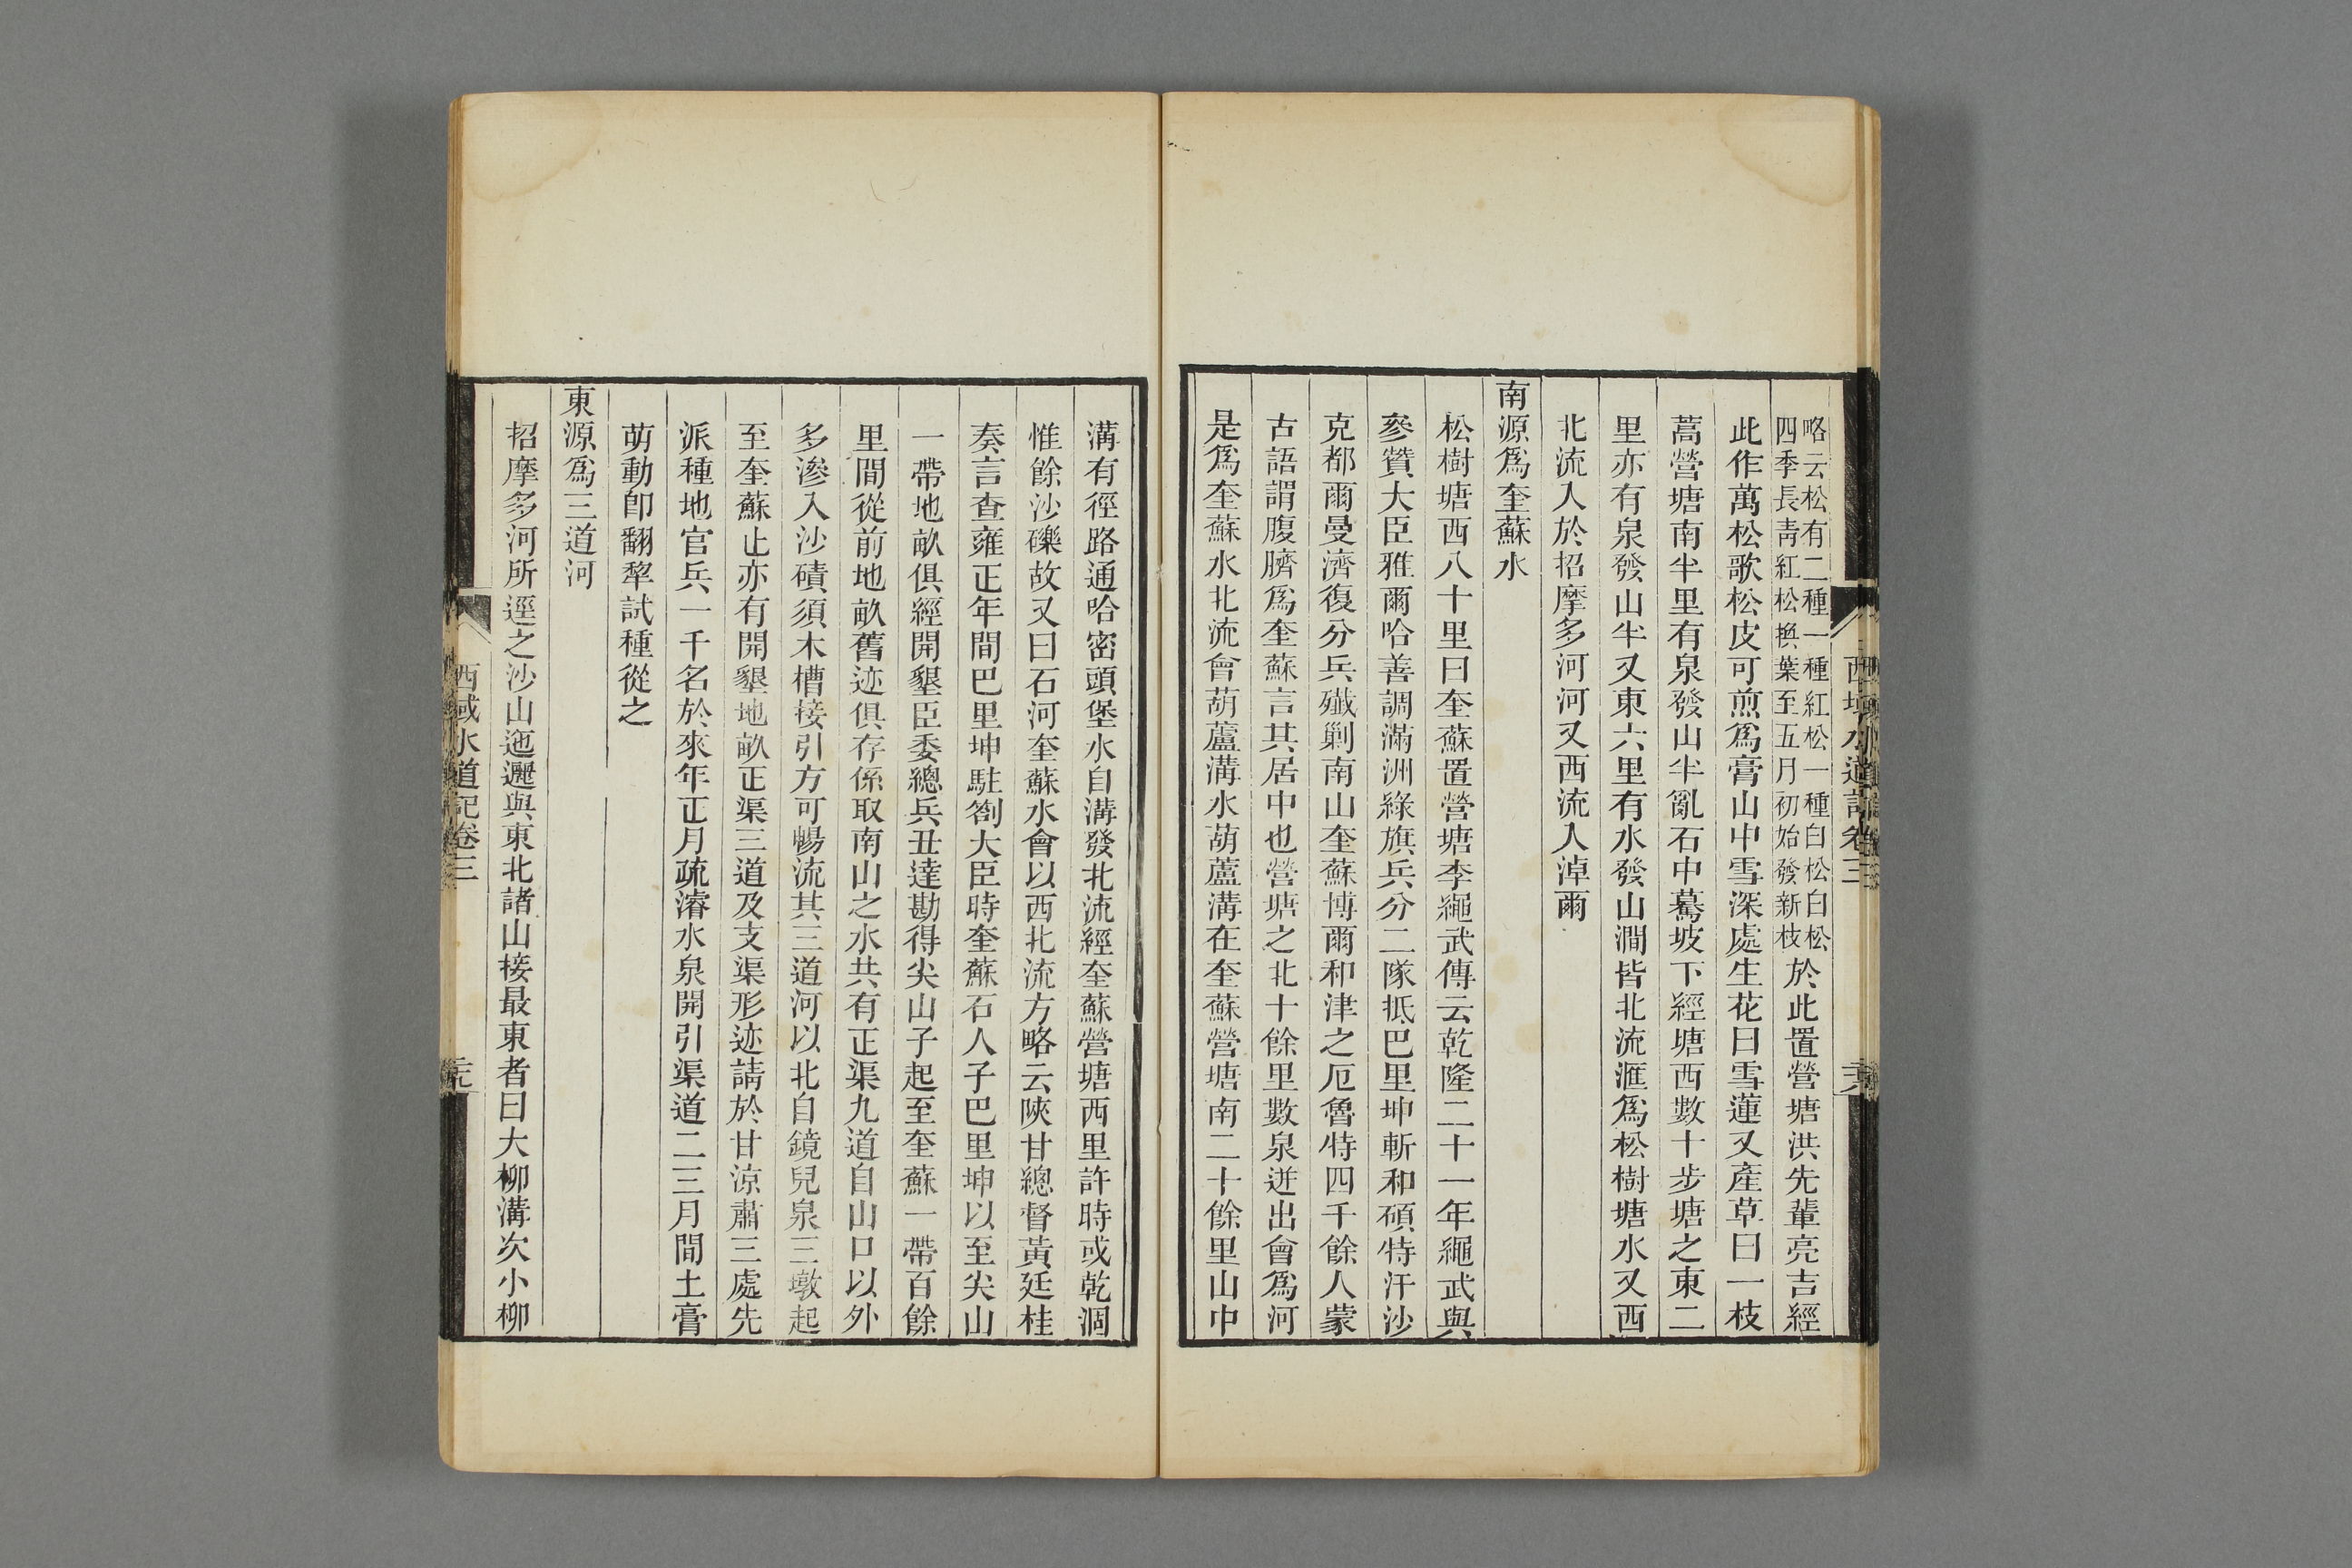 略云松有二種一種紅松一種白松白松
四季長青紅松換葉至五月初始發新枝
於此置營塘洪先輩亮吉經
此作萬松歌松皮可煎爲膏山中雪深處生花曰雪蓮又產草曰一枝
蒿營塘南半里有泉發山半亂石中驀坡下經塘西數十步塘之東二
里亦有泉發山半又東六里有水發山澗皆北流滙爲松樹塘水又西
北流入於招摩多河河又西流入淖爾
南源爲奎蘇水
松樹塘西八十里曰奎蘇置營塘李繩武傳云乾隆二十一年繩武與
參贊大臣雅爾哈善調滿洲綠旗兵分二隊抵巴里坤斬和碩特汗沙
克都爾曼濟復分兵殲剿南山奎蘇博爾和津之厄魯特四千餘人蒙
古語謂腹臍爲奎蘇言其居中也營塘之北十餘里數泉迸出會爲河
是爲奎蘇水北流會葫蘆溝水葫蘆溝在奎蘇營塘南二十餘里山中
溝有徑路通哈密頭堡水自溝發北流經奎蘇營塘西里許時或乾涸
惟餘沙礫故又曰石河奎蘇水會以西北流方略云陝甘總督黃廷桂
奏言查雍正年間巴里坤駐劄大臣時奎蘇石人子巴里坤以至尖山
一帶地畝俱經開墾臣委總兵丑達勘得尖山子起至奎蘇一帶百餘
里間從前地畝舊迹俱存係取南山之水共有正渠九道自山口以外
多滲入沙磧須木槽接引方可暢流其三道河以北自鏡兒泉三墩起
至奎蘇止亦有開墾地畝正渠三道及支渠形迹請於甘涼肅三處先
派種地官兵一千名於來年正月疏濬水泉開引渠道二三月間土膏
萌動卽翻犂試種從之
東源爲三道河
招摩多河所逕之沙山迤邐與東北諸山接最東者曰大柳溝次小柳
西域水道記卷三